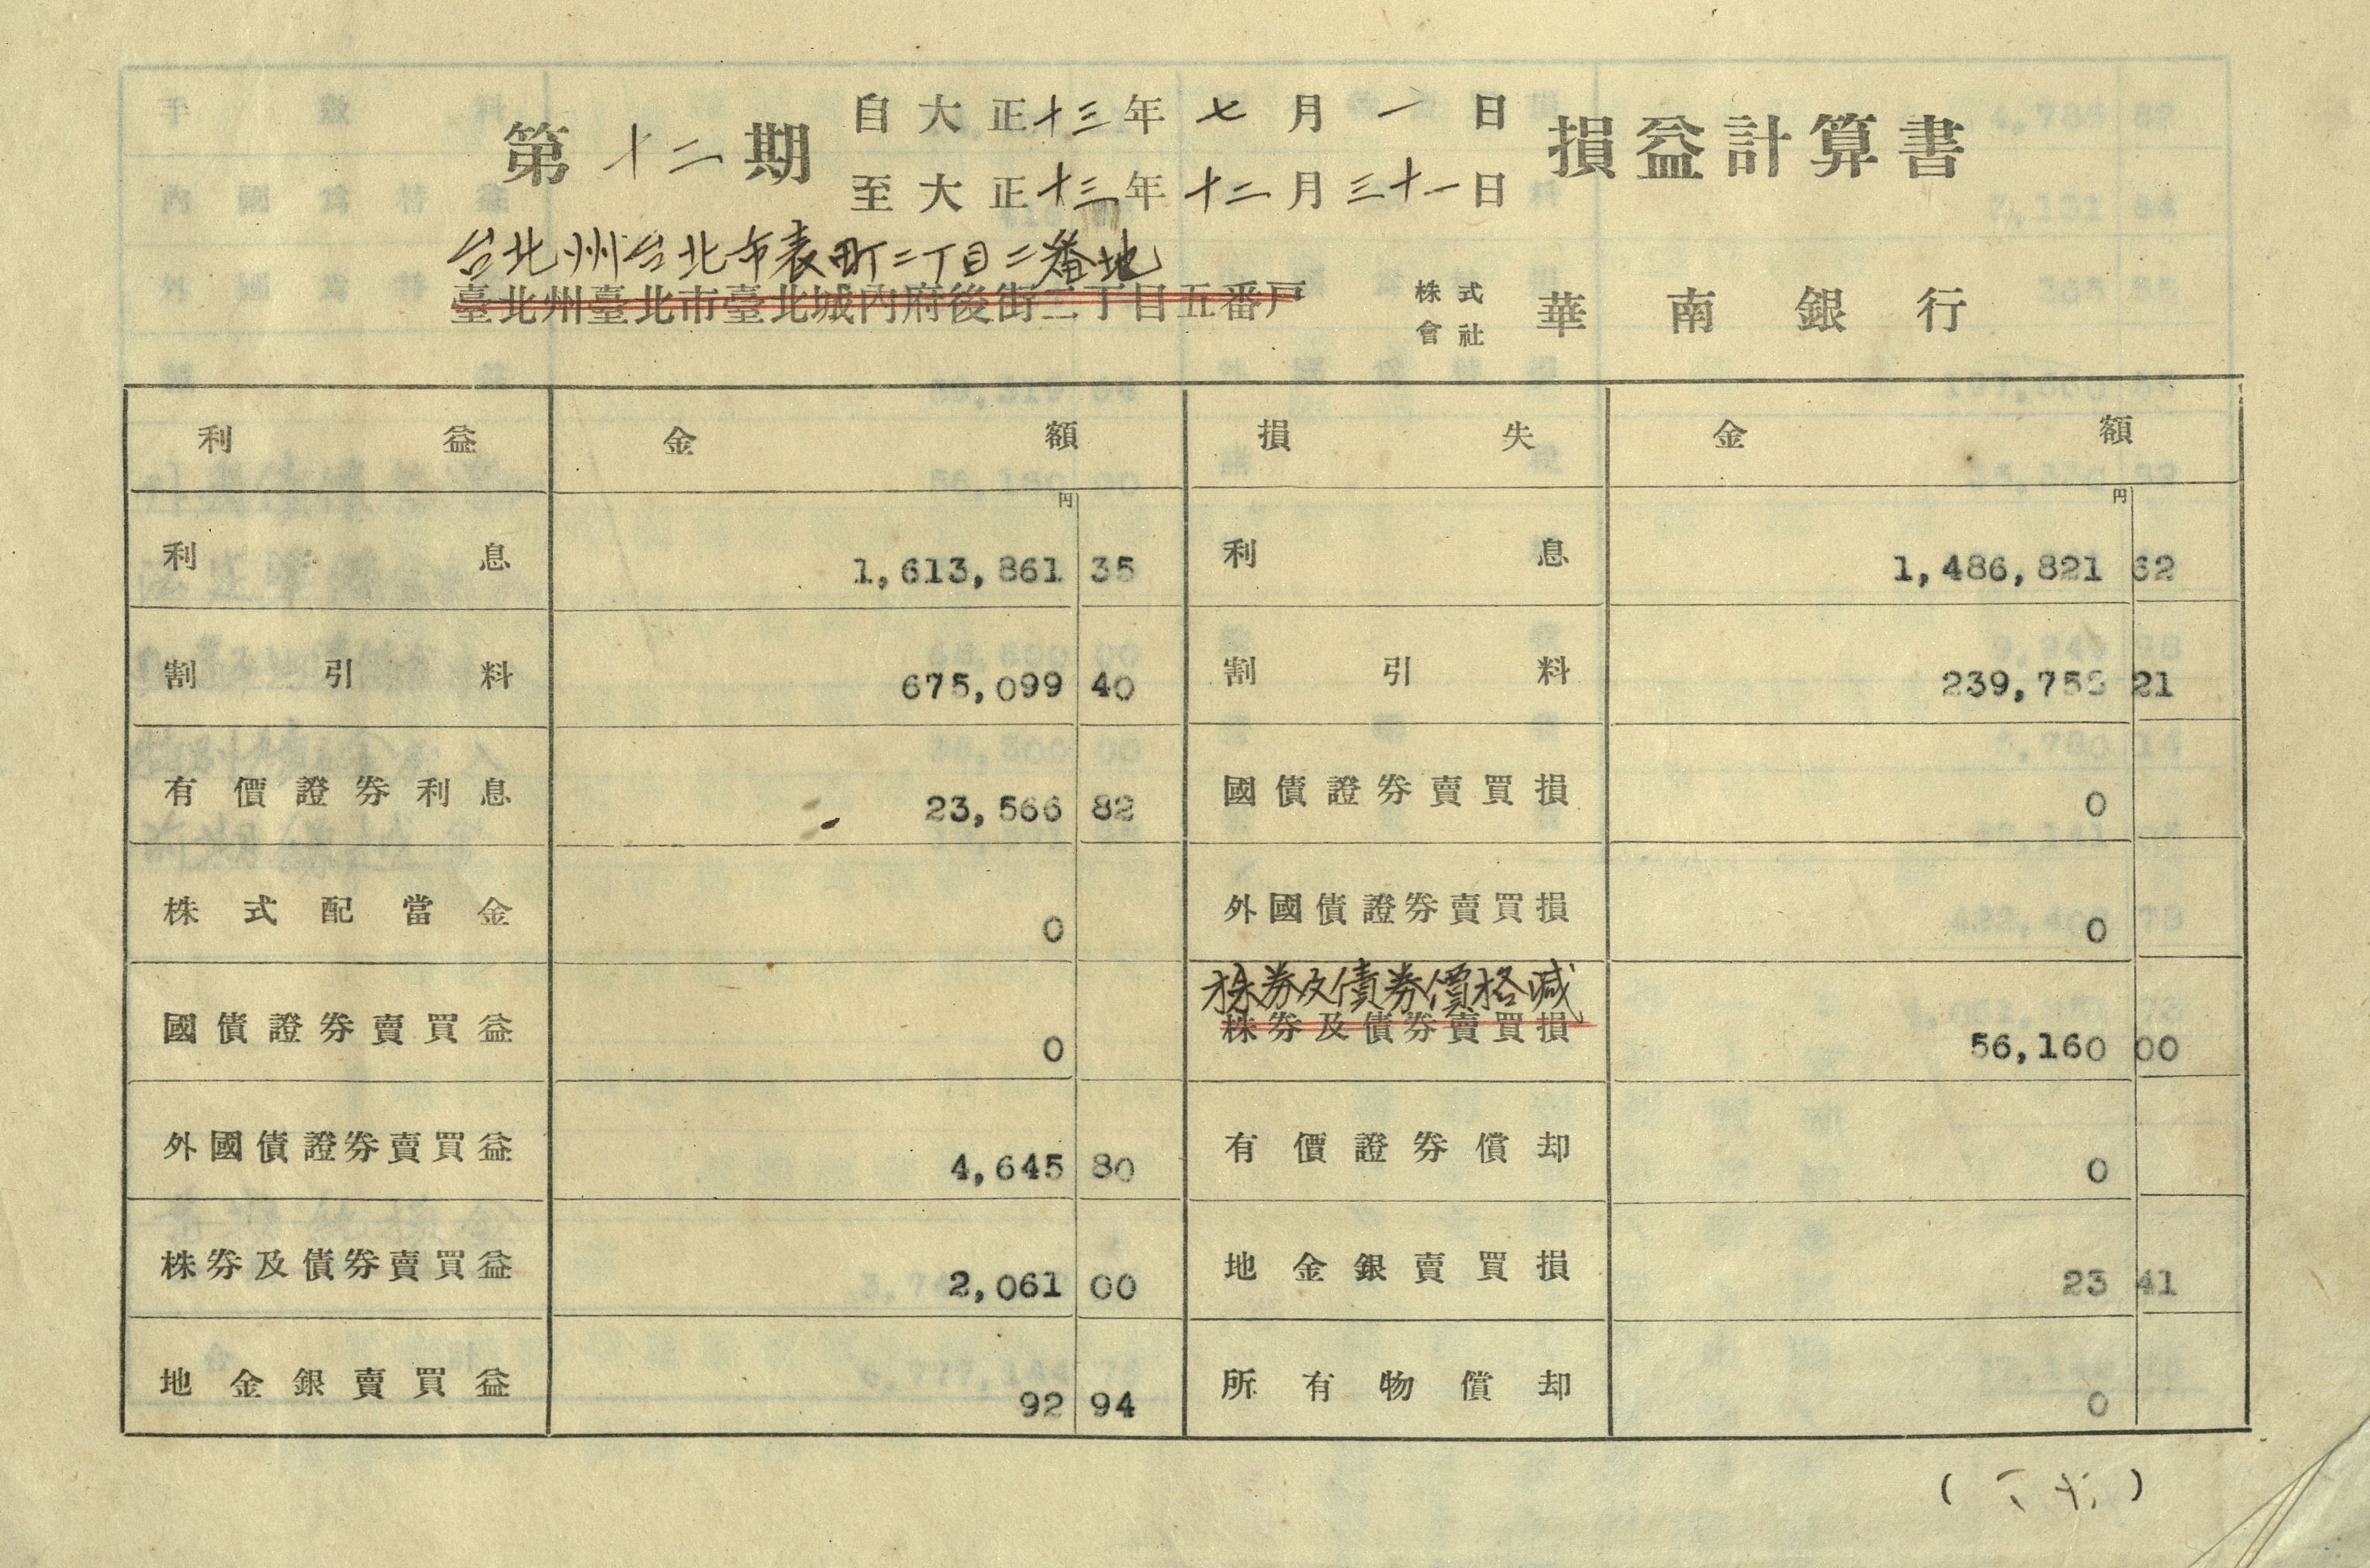 第十二期 自大正十三年七月一日 損益計算書
至大正十三年十二月三十一日
台北州台北市表町二丁目二番地
臺北州臺北市臺北城內府後街三丁目五番戶 株式會社 華南銀行
利益 金額 損失 金額
円 円
利息 1,613,861 35 利息 1,486,821 62
割引料 675,099 40 割引料 21
有價證券利息 23,566 82 國債證券賣買損 0
株式配當金 0 外國債證券賣買損 0
株券及債券價格減
國債證券賣買益 0 株券及債券賣買損 56,160 00
外國債證券賣買益 4,645 80 有價證券償却 0
株券及債券賣買益 2,061 00 地金銀賣買損 23 41
地金銀賣買益 92 94 所有物償却 0